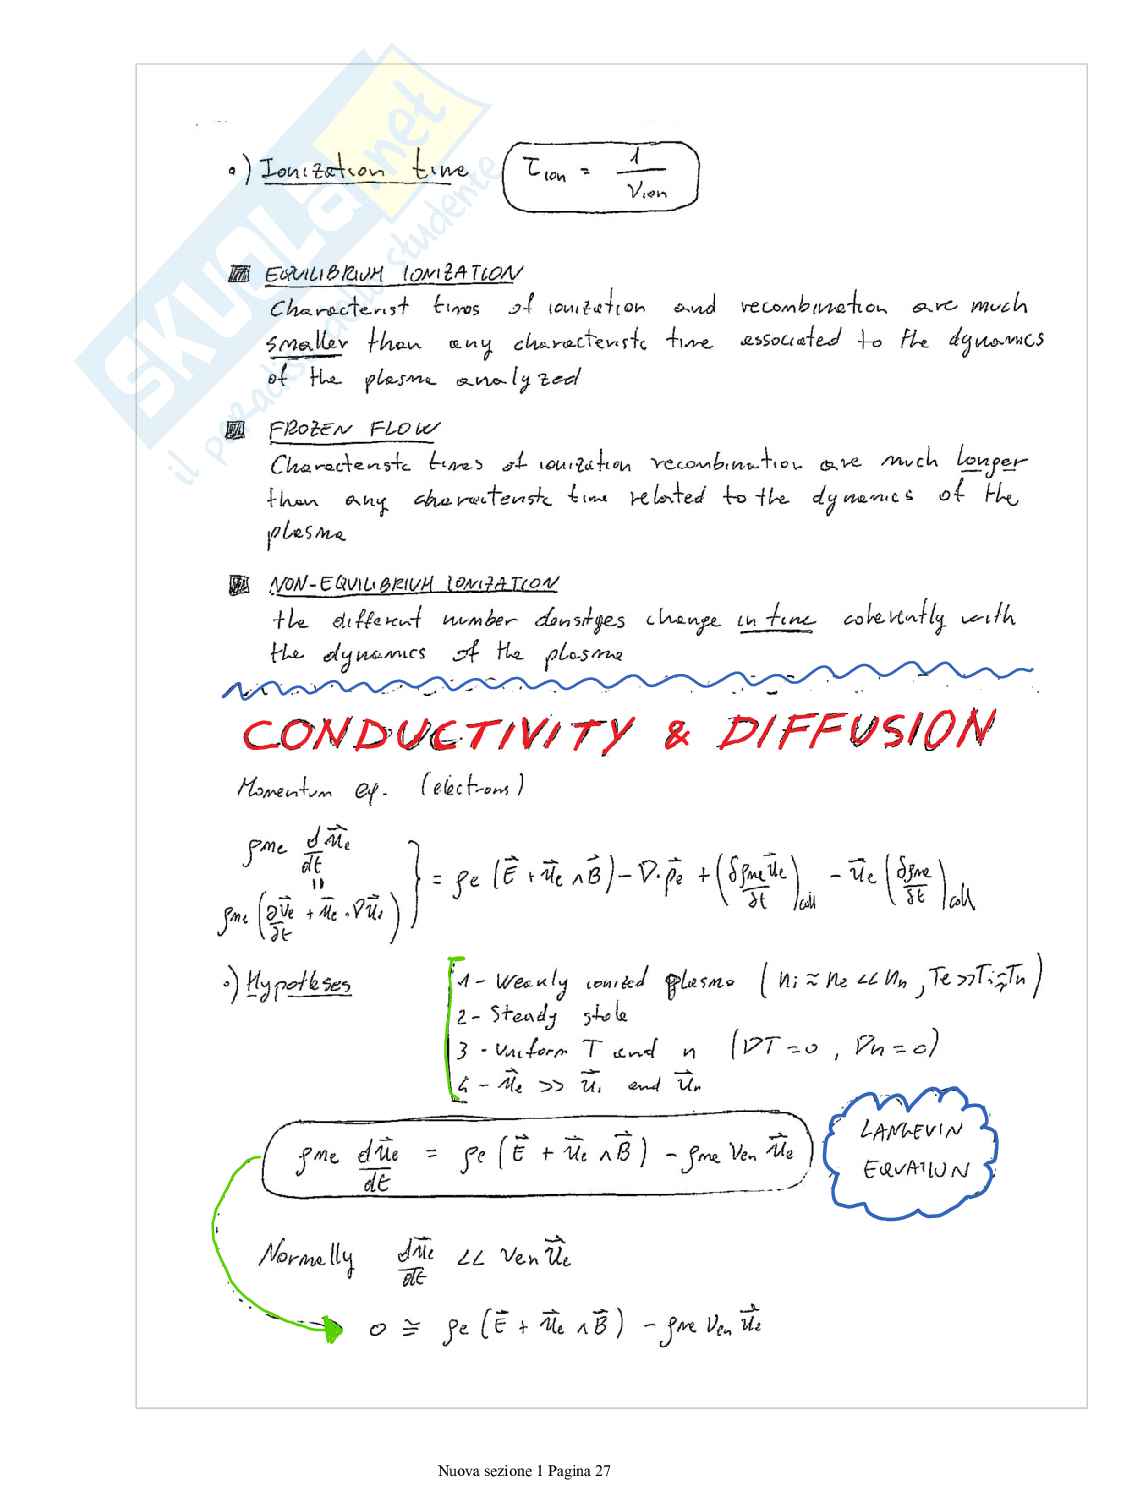 °) Ionization time τion = 1 / νion
EQUILIBRIUM IONIZATION
Characterist times of ionization and recombination are much
smaller than any characteristc time associated to the dynamics
of the plasma analyzed
FROZEN FLOW
Characteristc times of ionization recombination are much longer
than any characteristc time related to the dynamics of the
plasma
NON-EQUILIBRIUM IONIZATION
the different number densityes change in time coherently with
the dynamics of the plasma
CONDUCTIVITY & DIFFUSION
Momentum eq. (electrons)
ρme du⃗e/dt
=
ρme (∂v⃗e/∂t + u⃗e · ∇u⃗e) } = ρe (E⃗ + u⃗e ∧ B⃗) - ∇·p⃗e + (δρme u⃗e/δt)coll - u⃗e (δρme/δt)coll
°) Hypotheses
1 - Weakly ionized plasma (ni ≈ ne << nn, Te >> Ti ≈ Tn)
2 - Steady state
3 - Uniform T and n (∇T = 0, ∇n = 0)
4 - u⃗e >> u⃗i and u⃗n
ρme du⃗e/dt = ρe (E⃗ + u⃗e ∧ B⃗) - ρme νen u⃗e
LANGEVIN
EQUATION
Normally du⃗e/dt << νen u⃗e
0 ≅ ρe (E⃗ + u⃗e ∧ B⃗) - ρme νen u⃗e
SKUOLA.net
il paradiso dello studente
Nuova sezione 1 Pagina 27